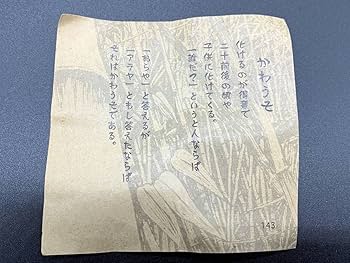 かわうそ
化けるのが得意で
二十前後の娘や
子供に化けてくる。
「誰だ?」というとんならば
「あらや」と答えるが
「アラヤ」ともし答えたならば
それはかわうそである。
143